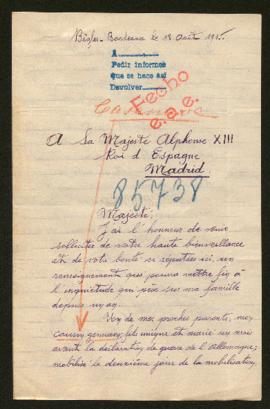 Bègles-Bordeaux le 18 Août 1915
A
Pedir informes
que se hace así
Devolver
Fecho
e.a.e.
A Sa Majesté Alphonse XIII
Roi d'Espagne
Madrid
85738
Majesté,
J'ai l'honneur de venir
solliciter de votre haute bienveillance
et de votre bonté si réputées ici, un
renseignement qui pourra mettre fin à
l'inquiétude qui pèse sur ma famille
depuis un an.
Un de mes proches parents, mon
cousin germain, fils unique et marié un mois
avant la déclaration de guerre de l'Allemagne,
mobilisé le deuxième jour de la mobilisation,